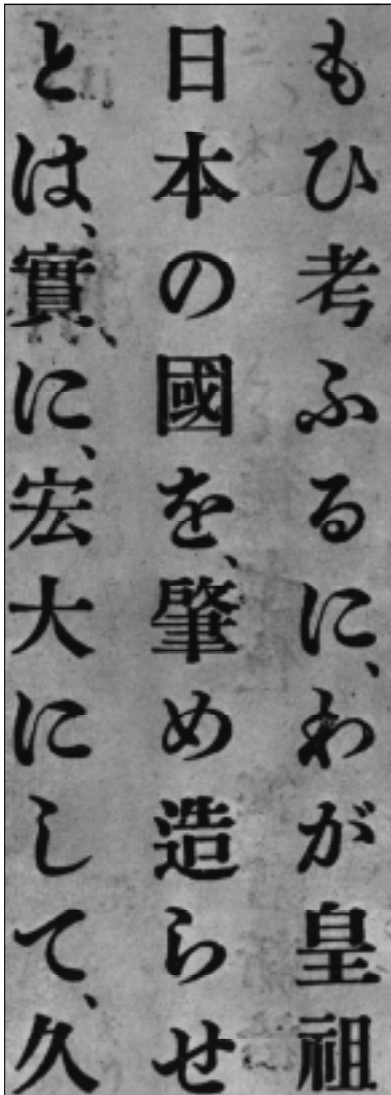 もひ考ふるに、わが皇祖
日本の國を、肇め造らせ
とは、實に、宏大にして、久